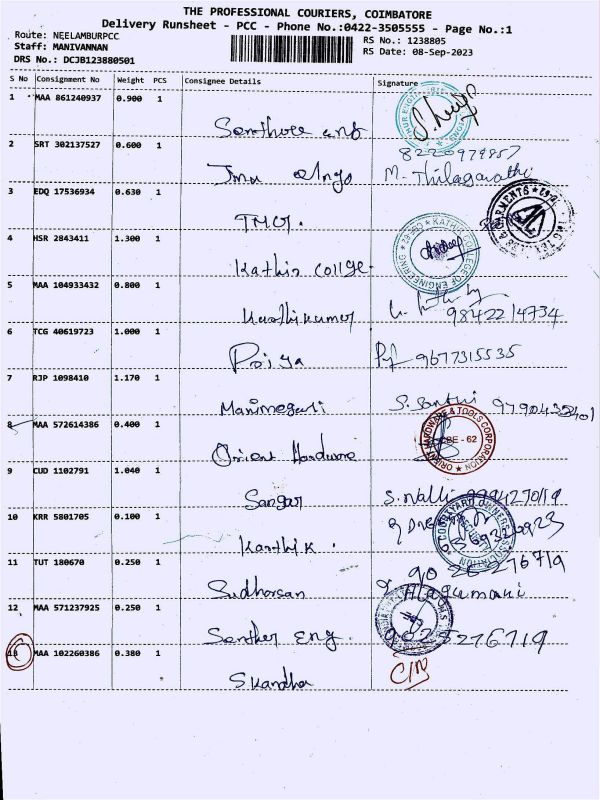 THE PROFESSIONAL COURIERS, COIMBATORE
Delivery Runsheet - PCC - Phone No.:0422-3505555 - Page No.:1
Route: NEELAMBURPCC
Staff: MANIVANNAN
DRS No.: DCJB123880501
RS No.: 1238805
RS Date: 08-Sep-2023
S No Consignment No Weight PCS Consignee Details Signature
1 MAA 861240937 0.900 1
8220979857
2 SRT 302137527 0.600 1
M. Thilagavathi
3 EDQ 17536934 0.630 1
TMCT.
4 HSR 2843411 1.300 1
Kathir College
KATHIR COLLEGE OF ENGINEERING
5 MAA 104933432 0.800 1
Karthikumar
9842214734
6 TCG 40619723 1.000 1
Priya 9677315535
7 RJP 1098410 1.170 1
Manimegali S. Santhi
8 MAA 572614386 0.400 1
Orient Hardware
ORIENT HARDWARE & TOOLS CORPORATION
CBE - 62
9 CUD 1102791 1.040 1
Sangar S. Nalli
10 KRR 5801705 0.100 1
Karthik.
COURTYARD OWNERS ASSOCIATION
11 TUT 180670 0.250 1
Sudharsan Alagumani
12 MAA 571237925 0.250 1
Santher Eng.
13 MAA 102260386 0.380 1
Skandha